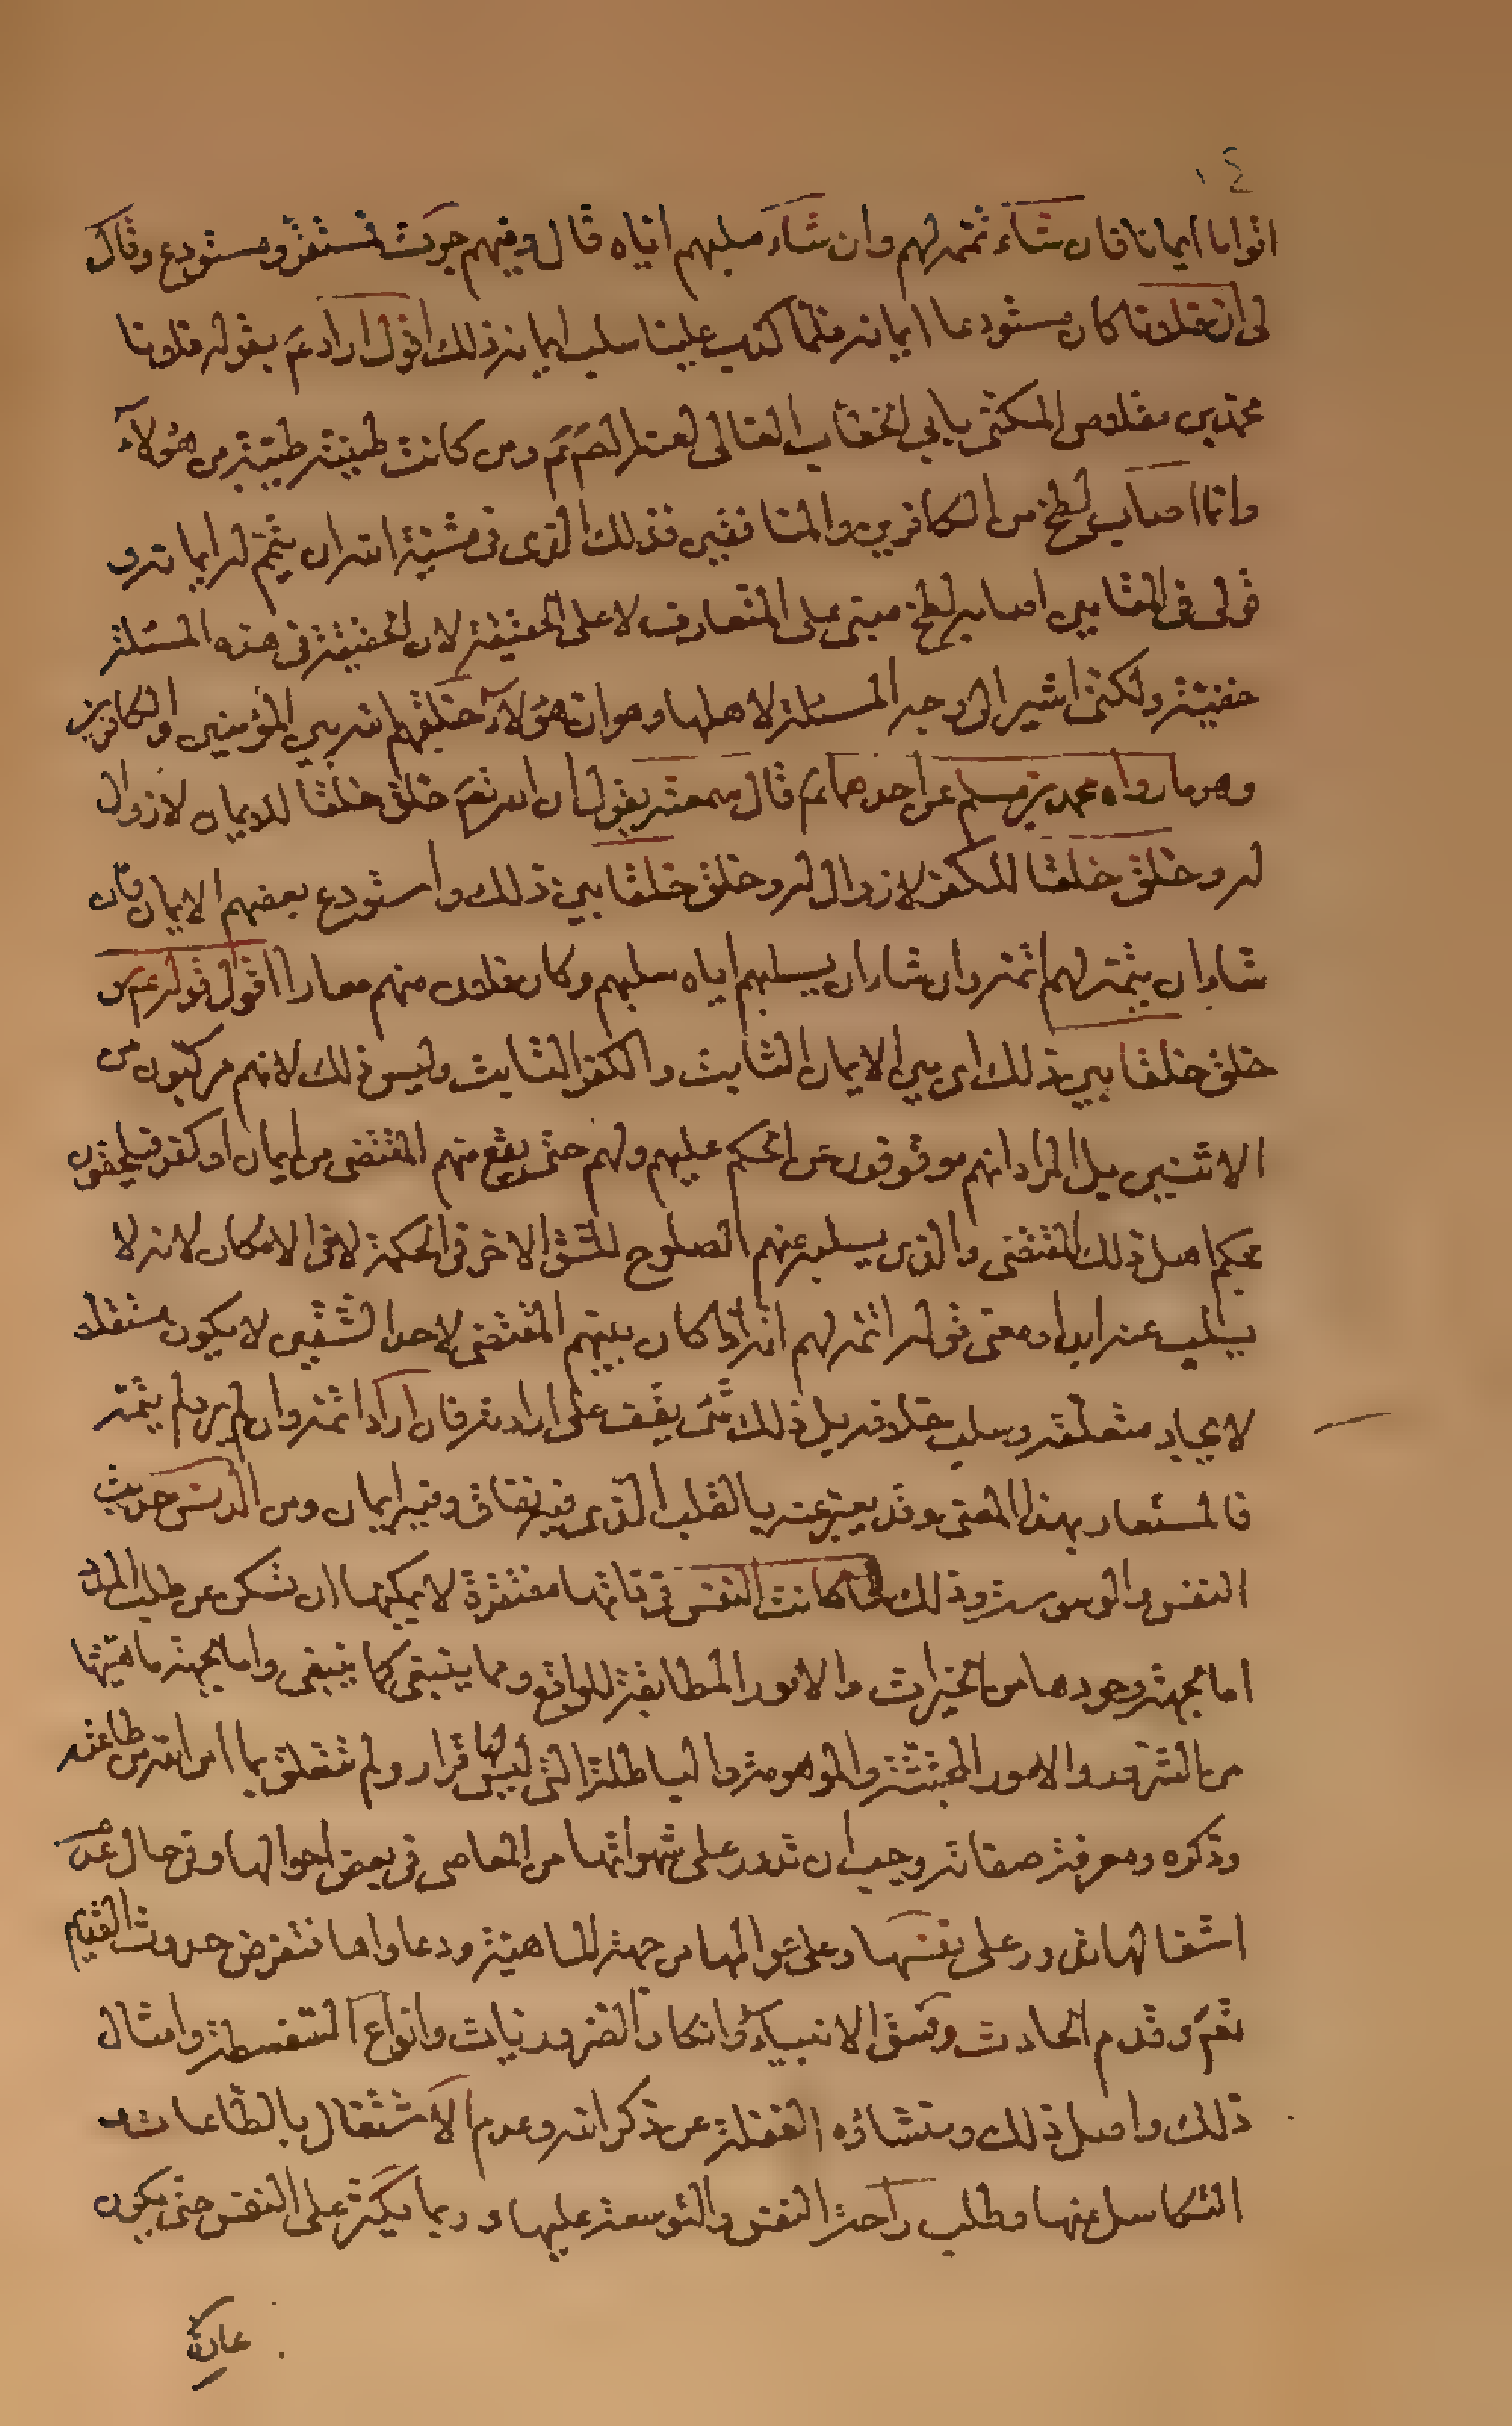 ١٤
اتوا ما ايمانا فان شاء تممه لهم وان شاء سلبهم اياه قال وفيهم جرت فمستقر ومستودع وقال
لى ان فلانا كان مستودعا ايمانه فلما كذب علينا سلب ايمانه ذلك اقول اراد عَ بقوله فلانا
محمد بن مقلاص المكنى بابى الخطاب الغالى لعنه الصَمَ ومن كانت طينته طيبة من هؤلاء
وانما اصاب لطخ من الكافرين والمنافقين فذلك الذى فى مشية الله ان يتم له ايمانه و
قولى فى المقامين اصابه لطخ مبنى على المتعارف لا على الحقيقة لان الحقيقة فى هذه المسئلة
خفيته ولكنى اشير الى وجه المسئلة لاهلها وهو ان هؤلاء خلقهم الله بين المؤمنين والكافرين
وهو ما رواه محمد بن مسلم عن احدهما عَ قال سمعته يقول ان الله تعَ خلق خلقا للايمان لا زوال
له وخلق خلقا للكفر لا زوال له وخلق خلقا بين ذلك واستودع بعضهم الايمان فان
شاء ان يتمه لهم اتمه وان شاء ان يسلبهم اياه سلبهم وكان فلان منهم معارا اقول قوله عَ و
خلق خلقا بين ذلك اى بين الايمان الثابت والكفر الثابت وليس ذلك لانهم مركبون من
الاثنين بل المراد انهم موقوفون عن الحكم عليهم ولهم حتى يقع منهم المقتضى من ايمان او كفر فيلحقون
بحكم اصل ذلك المقتضى والذى يسلبه عنهم الصلوح للشق الاخر فى الحكمة لا فى الامكان لانه لا
يسلب عنه ابدا ومعنى قوله اتمه لهم انه اذا كان بينهم المقتضى لاحد الشقين لا يكون مستقلا
لايجاد متعلقه وسلب خلافه بل ذلك شئ يقف على ارادته فان اراد اتمه وان لم يرد لم يتمه
فالمستعار بهذا المعنى وقد يعبر عنه بالقلب الذى فيه نفاق وفيه ايمان ومن الدس حديث
النفس والوسوسة وذلك لما كانت النفس فى ذاتها مفتقرة لا يمكنها ان تسكن عن طلب المدد
اما بجهة وجودها من الخيرات والامور المطابقة للواقع ومما ينبغى كما ينبغى واما بجهة ماهيتها
من الشرور والامور المجتثة والموهومة والباطلة التى ليس لها قرار ولم تتعلق بما امر الله من طاعته
وذكره ومعرفة صفاته وجب ان تدور على شهواتها من المعاصى فى بعض احوالها وفى حال عدم
اشتغالها تدور على نفسها وعلى عوالمها من جهة الماهية ودعاواها فتفرض حدوث القديم
تعَ وقدم الحادث وفسق الانبياء وانكار الضروريات وانواع السفسطة وامثال
ذلك واصل ذلك ومنشاؤه الغفلة عن ذكر الله وعدم الاشتغال بالطاعات و
التكاسل عنها وطلب راحة النفس والتوسعة عليها و ربما يكثر على النفس حتى يكون
عادة